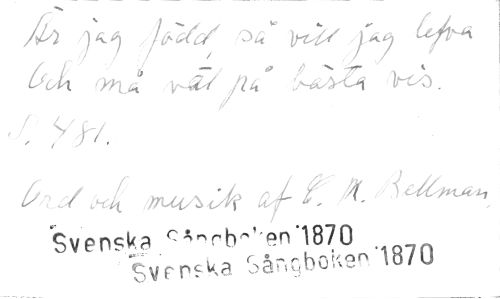 Är jag född, så vill jag lefva
Och må väl på bästa vis.
S. 481.
Ord och musik af C. M. Bellman.
Svenska Sångboken 1870
Svenska Sångboken 1870